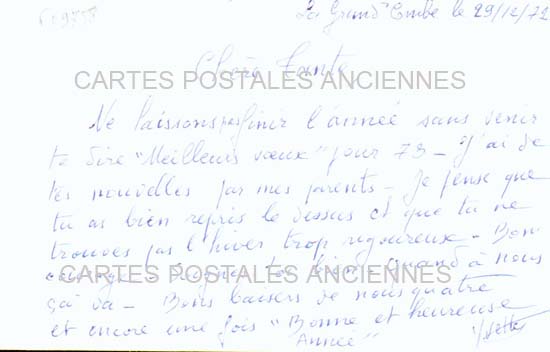 La Grand' Combe le 29/12/72
Chère Tante
CARTES POSTALES ANCIENNES
Ne laissons pas finir l'année sans venir
te dire "Meilleurs vœux" pour 73 - J'ai de
tes nouvelles par mes parents - Je pense que
tu as bien repris le dessus et que tu ne
trouves pas l'hiver trop rigoureux - Bon
courage - Soigne toi bien - quand à nous
CARTES POSTALES ANCIENNES
ça va - Bons baisers de nous quatre
et encore une fois "Bonne et heureuse
Année"